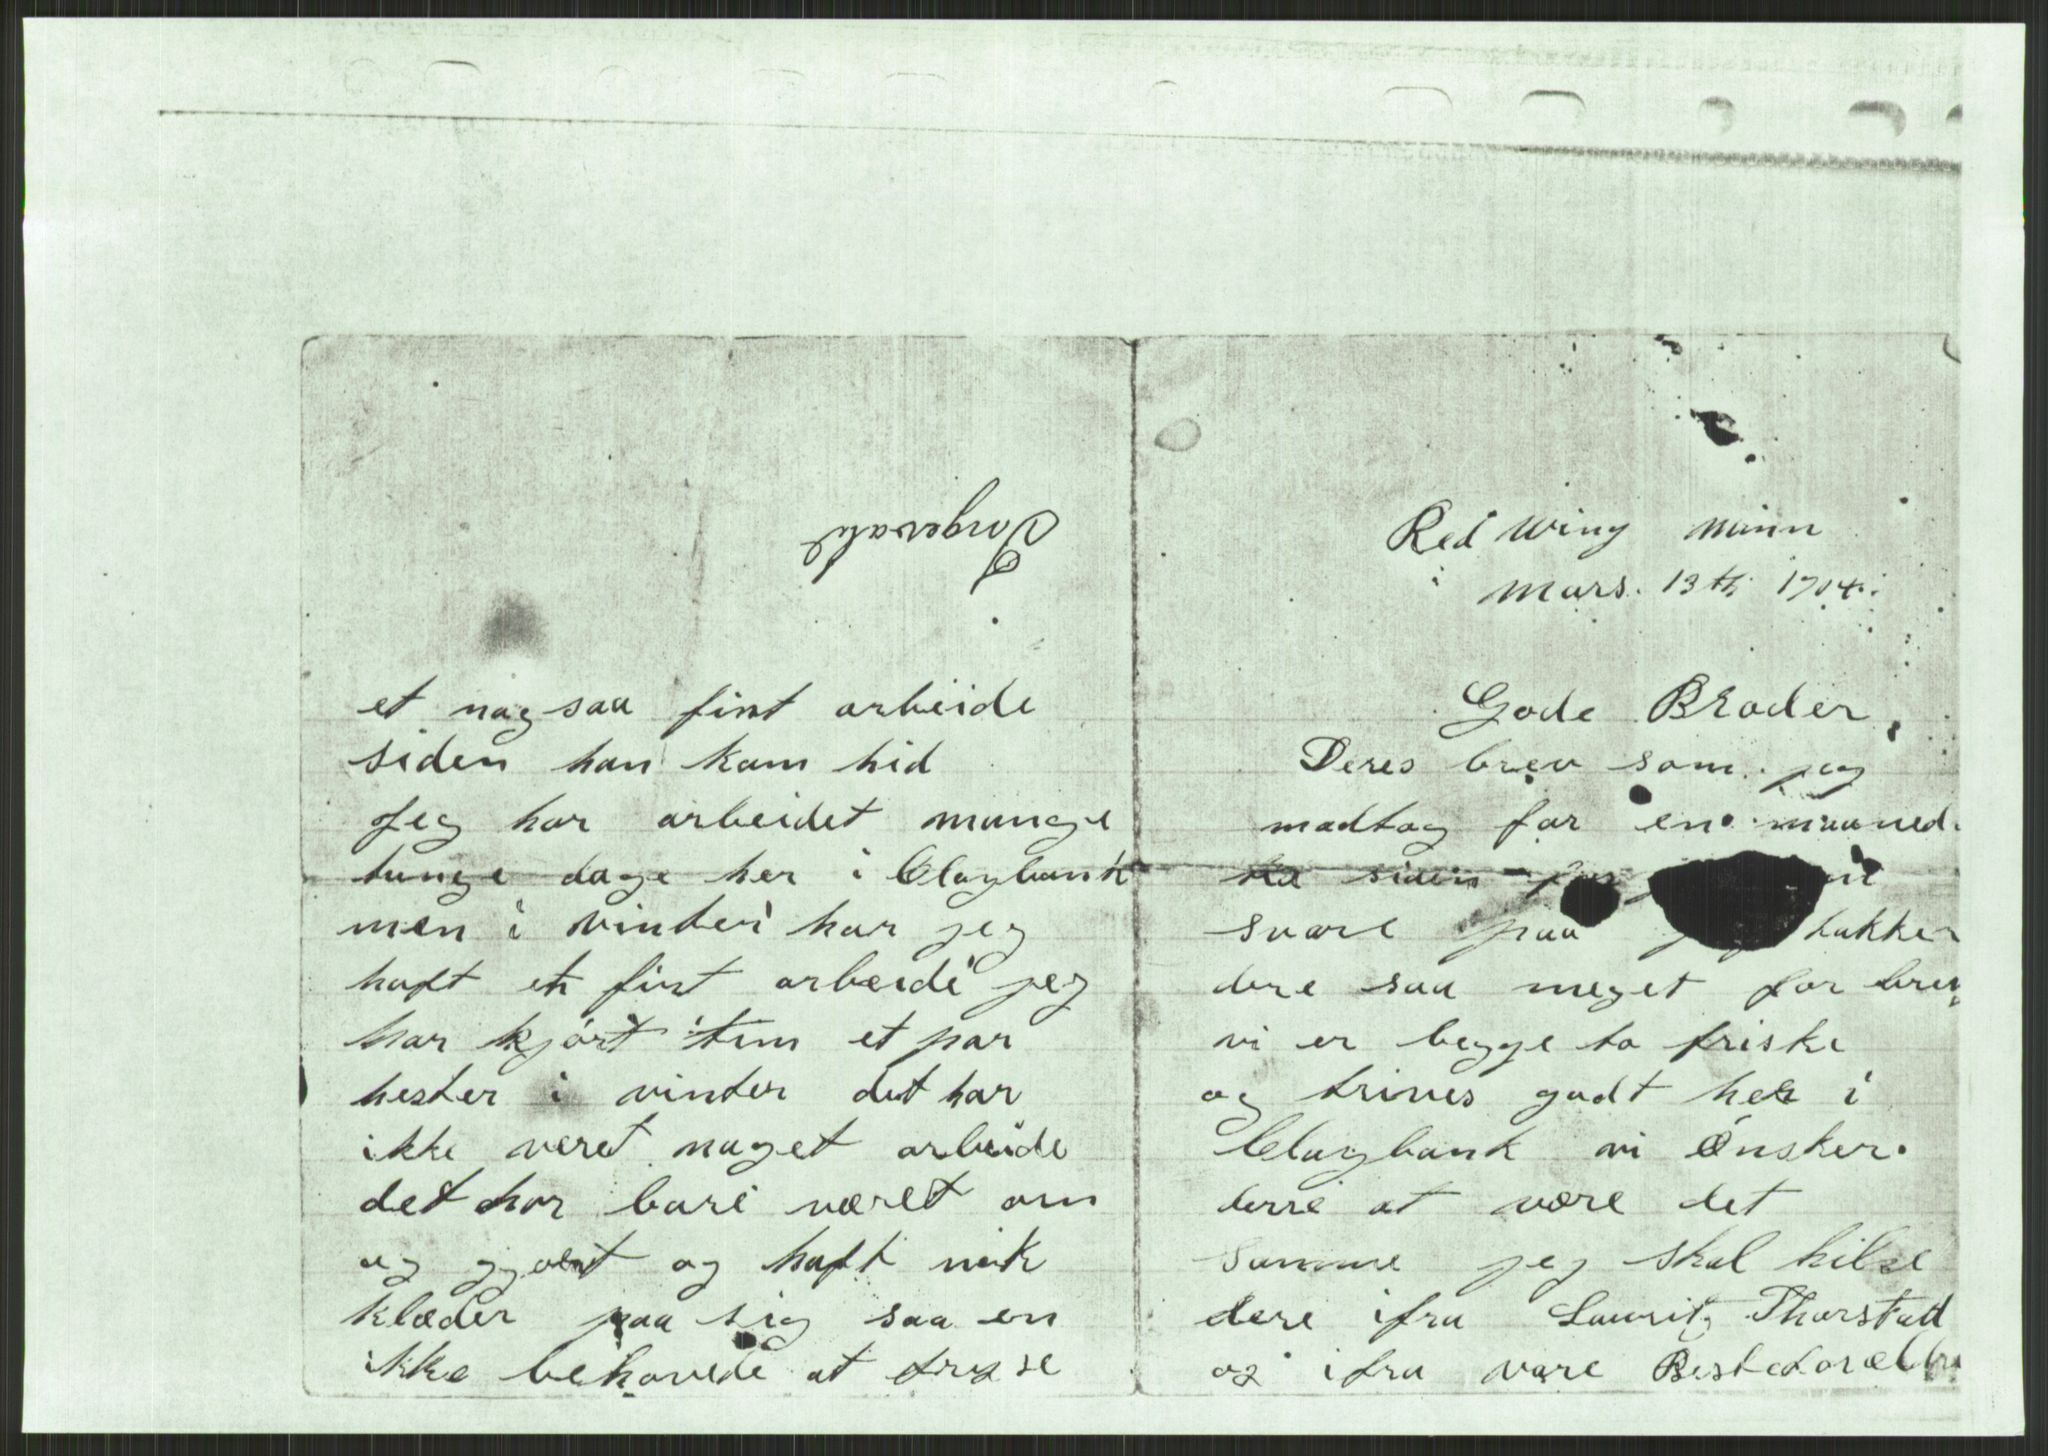 Red Wing Minn
Mars. 13th 1904.
Gode Broder,
Deres brev som jeg
modtog for en maaned
siden
svare paa takker
dere saa meget for brev
vi er begge to friske
og trives godt her i
Claybank vi Ønsker
derre at være det
samme jeg skal hilse
dere ifra Lauritz Thorstad
og ifra vare Besteforældre
Torgervald
et nog saa fint arbeide
siden han kom hid
Jeg har arbeidet mange
tunge dage her i Claybank
men i vinter har jeg
haft et fint arbeide jeg
har kjørt tem et par
hester i vinter det har
ikke veret noget arbeide
det har bare været om
og gjort og haft nok
klæder paa sig saa en
ikke behøvede at fryse